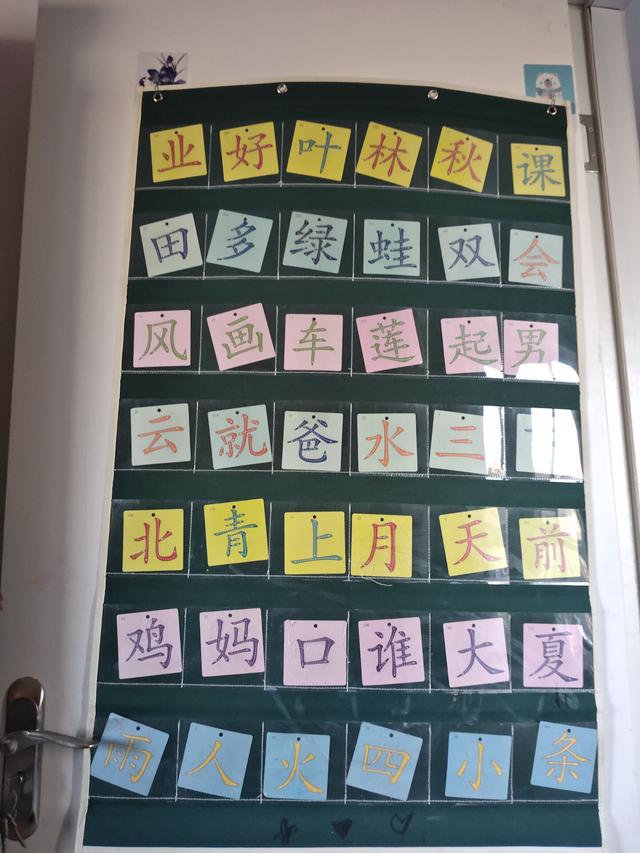 业好叶林秋课
田多绿蛙双会
风画车莲起男
云就爸水三
北青上月天前
鸡妈口谁大夏
雨人火四小条